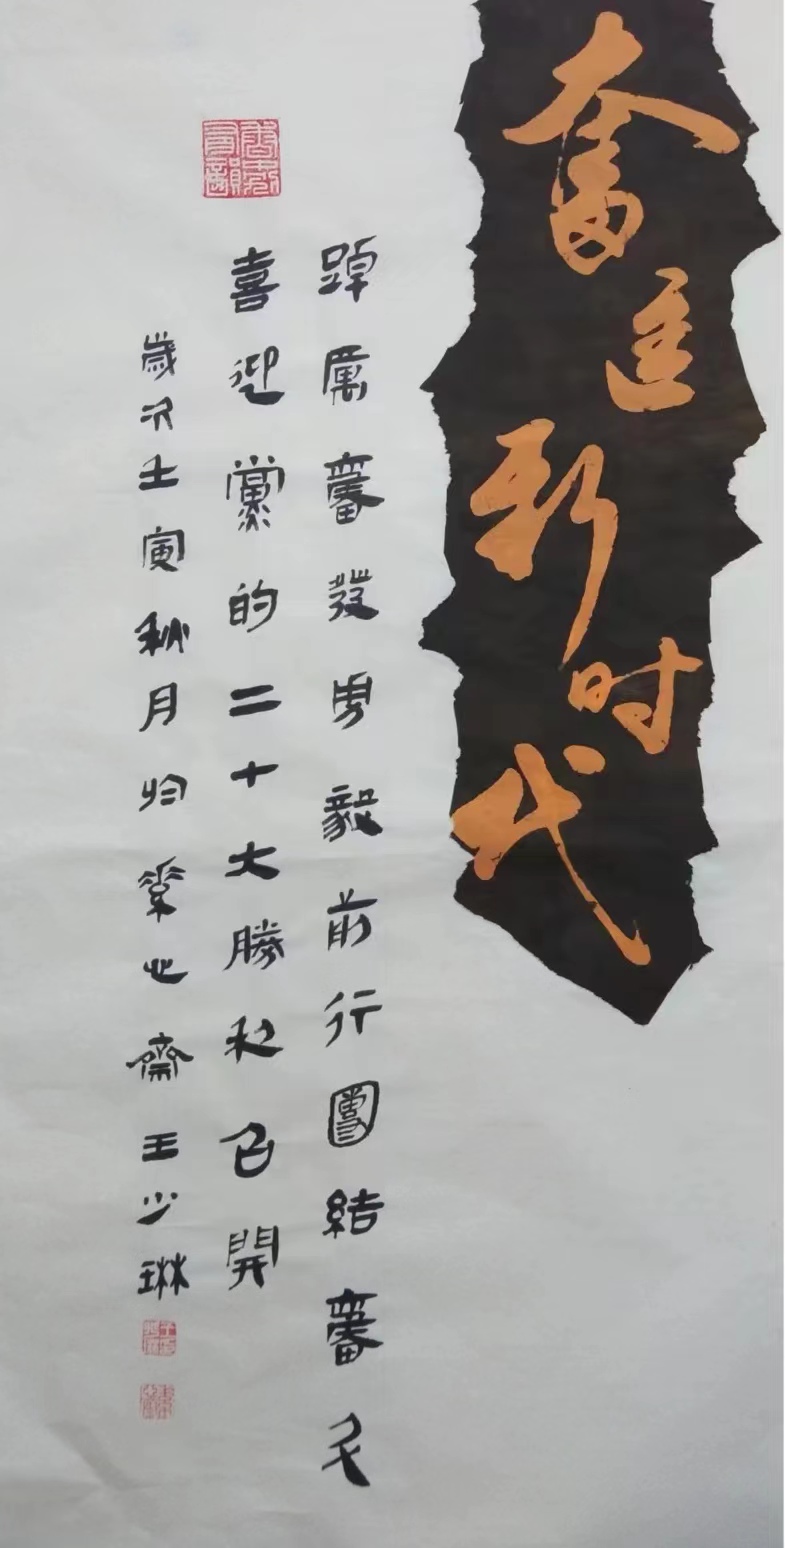 奋進新时代
踔厲奮發勇毅前行團結奮斗
喜迎黨的二十大勝利召開
歲次壬寅秋月於素心齋王少琳